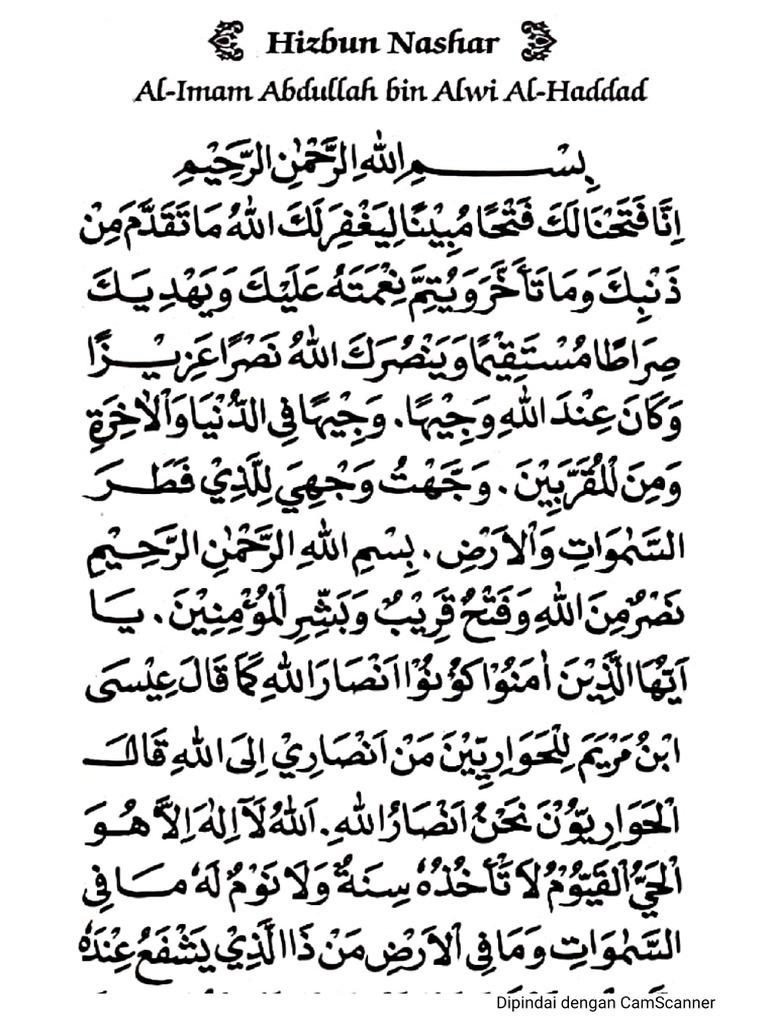 Hizbun Nashar
Al-Imam Abdullah bin Alwi Al-Haddad
بِسْــــــــمِ اللهِ الرَّحْمٰنِ الرَّحِيْمِ
اِنَّا فَتَحْنَا لَكَ فَتْحًا مُبِيْنًا لِيَغْفِرَ لَكَ اللهُ مَا تَقَدَّمَ مِنْ
ذَنْبِكَ وَمَا تَأَخَّرَ وَيُتِمَّ نِعْمَتَهُ عَلَيْكَ وَيَهْدِيَكَ
صِرَاطًا مُسْتَقِيْمًا وَيَنْصُرَكَ اللهُ نَصْرًا عَزِيْزًا
وَكَانَ عِنْدَ اللهِ وَجِيْهًا. وَجِيْهًا فِى الدُّنْيَا وَاْلاٰخِرَةِ
وَمِنَ الْمُقَرَّبِيْنَ. وَجَّهْتُ وَجْهِيَ لِلَّذِيْ فَطَرَ
السَّمٰوَاتِ وَاْلاَرْضِ. بِسْمِ اللهِ الرَّحْمٰنِ الرَّحِيْمِ
نَصْرٌ مِنَ اللهِ وَفَتْحٌ قَرِيْبٌ وَبَشِّرِ الْمُؤْمِنِيْنَ. يَا
اَيُّهَا الَّذِيْنَ اٰمَنُوْا كُوْنُوْا اَنْصَارَ اللهِ كَمَا قَالَ عِيْسَى
ابْنُ مَرْيَمَ لِلْحَوَارِيِّيْنَ مَنْ اَنْصَارِيْ اِلَى اللهِ قَالَ
الْحَوَارِيُّوْنَ نَحْنُ اَنْصَارُ اللهِ. اَللهُ لَآ اِلٰهَ اِلاَّ هُوَ
الْحَيُّ الْقَيُّوْمُ لاَ تَأْخُذُهُ سِنَةٌ وَلاَ نَوْمٌ لَهُ مَا فِى
السَّمٰوَاتِ وَمَا فِى اْلاَرْضِ مَنْ ذَا الَّذِيْ يَشْفَعُ عِنْدَهُ
Dipindai dengan CamScanner